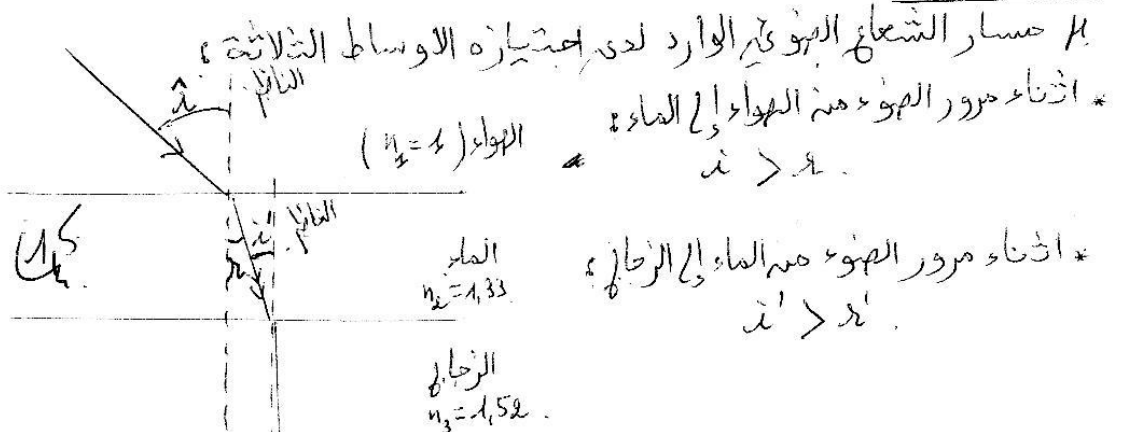 مسار الشعاع الضوئي الوارد لدى اجتيازه الأوساط الثلاثة :
* اثناء مرور الضوء من الهواء إلى الماء :
i > r .
* اثناء مرور الضوء من الماء إلى الزجاج :
i' > r' .
الناظم
î
الهواء (n₁ = 1)
الناظم
i'
r
الماء
n₂ = 1,33
الزجاج
n₃ = 1,52 .